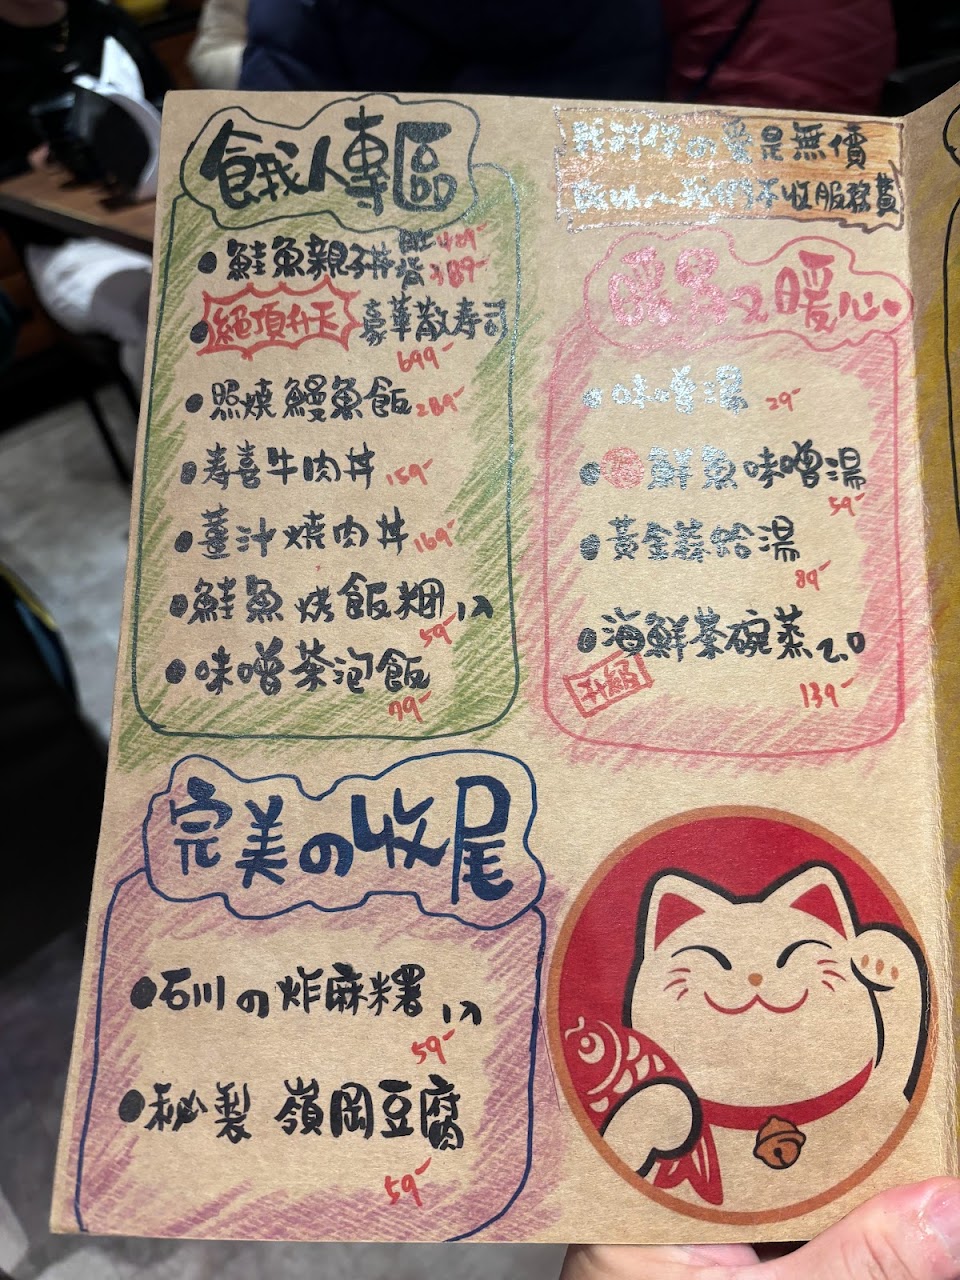 餓人專區
鮭魚親子丼 489-
389-
絕頂升玉 豪華散寿司
699-
照燒鰻魚飯 289-
寿喜牛肉丼 159-
薑汁燒肉丼 169-
鮭魚烤飯糰 1入
59-
味噌茶泡飯
79-
我對你の愛是無價
所以我們不收服務費
暖胃又暖心
味噌湯 29-
鮮魚味噌湯
59-
黃金蜆蛤湯
89-
海鮮茶碗蒸 2.0
升級
139-
完美の收尾
石川の炸麻糬 1入
59-
秘製 嶺岡豆腐
59-